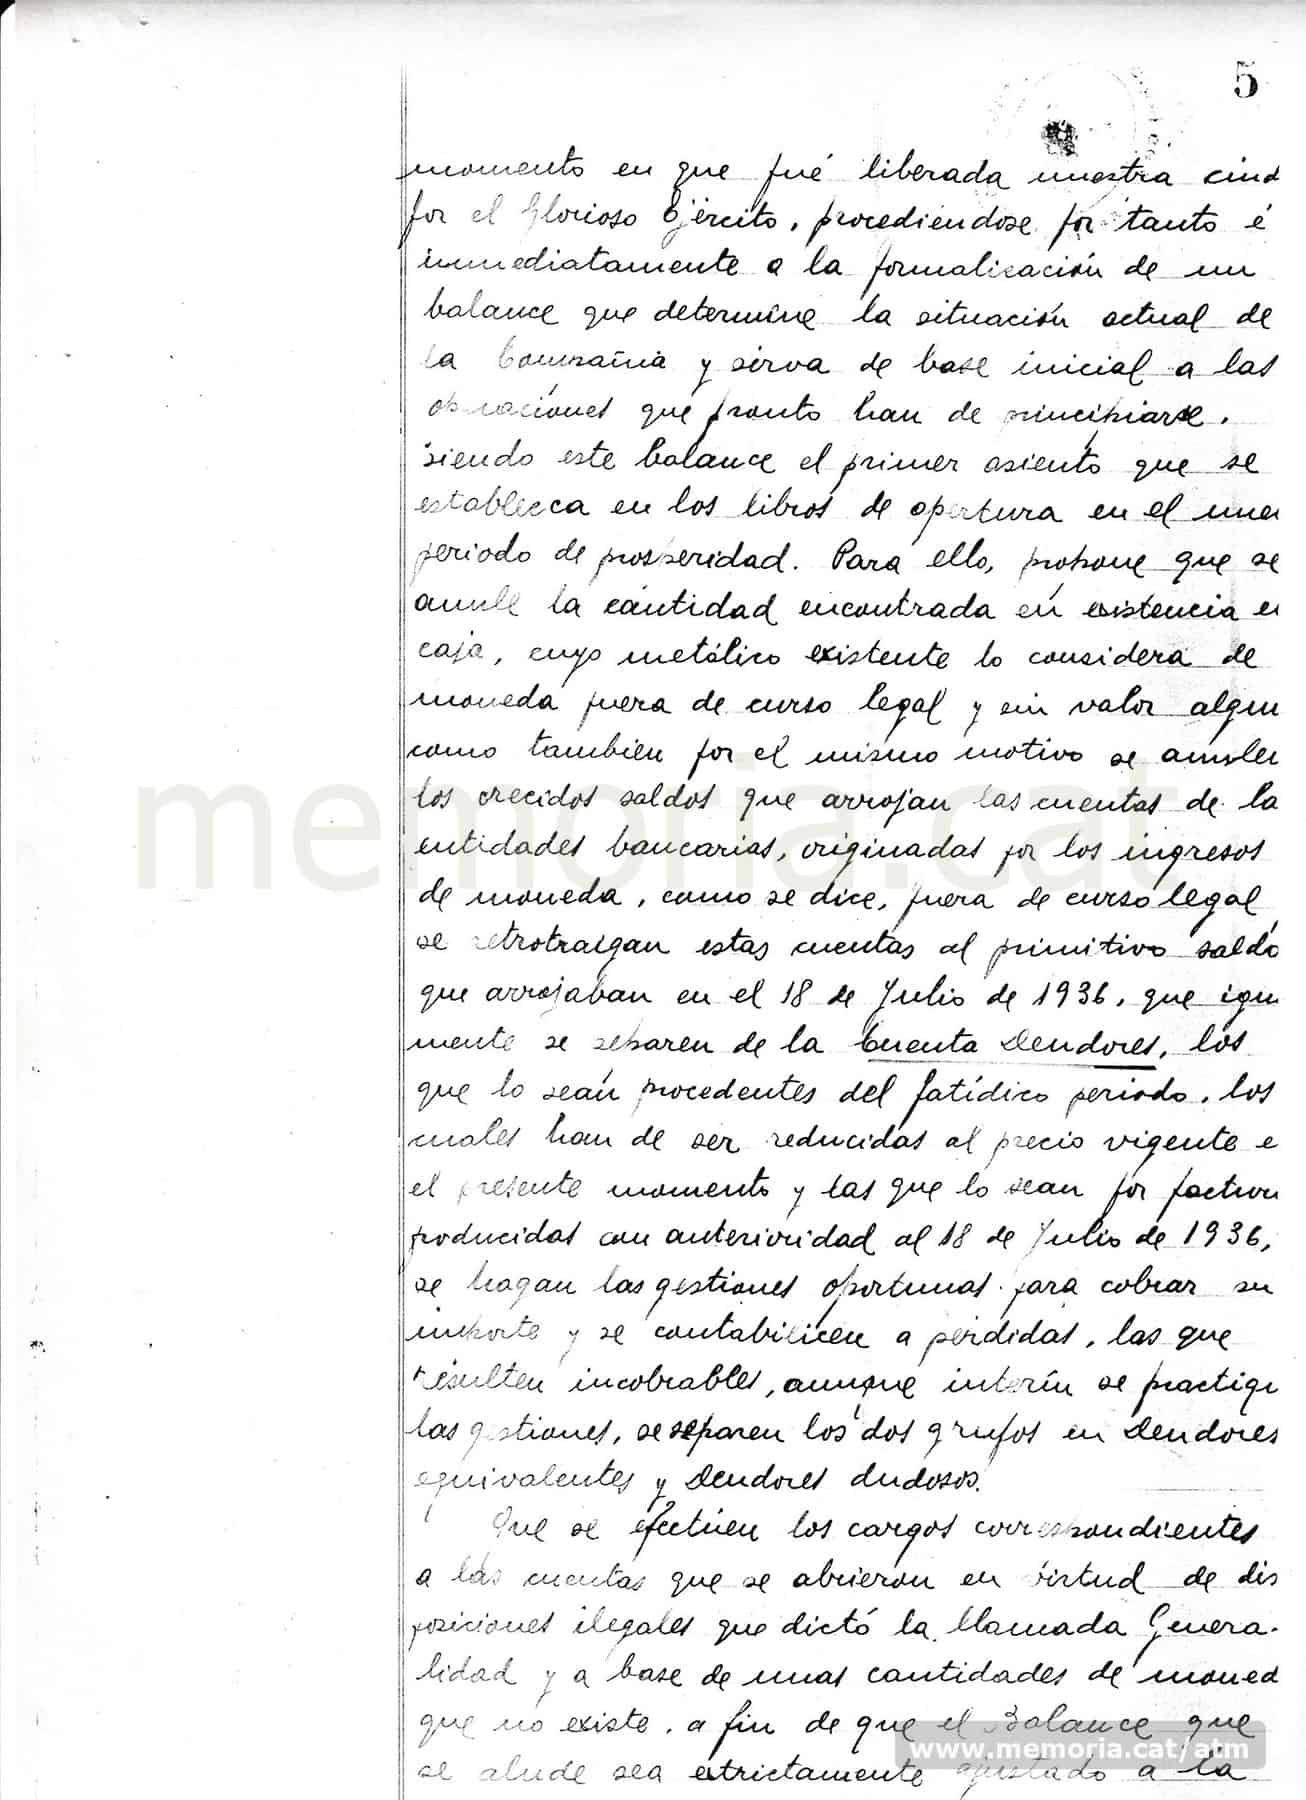 5
momento en que fué liberada nuestra ciud
por el Glorioso Ejército, procediéndose por tanto é
inmediatamente a la formalización de un
balance que determine la situación actual de
la Compañia y sirva de base inicial a las
operaciones que pronto han de principiarse,
siendo este balance el primer asiento que se
establezca en los libros de apertura en el nuev
periodo de prosperidad. Para ello, propone que se
anule la cantidad encontrada en existencia en
caja, cuyo metálico existente lo considera de
moneda fuera de curso legal y sin valor algun
como tambien por el mismo motivo se anulen
los crecidos saldos que arrojan las cuentas de la
entidades bancarias, originadas por los ingresos
de moneda, como se dice, fuera de curso legal,
se retrotraigan estas cuentas al primitivo saldo
que arrojaban en el 18 de Julio de 1936, que igu
mente se separen de la Cuenta Deudores, los
que lo sean procedentes del fatídico periodo, los
cuales han de ser reducidas al precio vigente e
el presente momento y las que lo sean por factur
producidas con anterioridad al 18 de Julio de 1936,
se hagan las gestiones oportunas para cobrar su
importe y se contabilicen a pérdidas, las que
resulten incobrables, aunque interín se practiqu
las gestiones, se separen los dos grupos en Deudores
equivalentes y Deudores dudosos.
Que se efectúen los cargos correspondientes
a las cuentas que se abrieron en virtud de dis
posiciones ilegales que dictó la llamada Genera-
lidad y a base de unas cantidades de moned
que no existe, a fin de que el Balance que
se alude sea extrictamente ajustado a la
memoria.cat
www.memoria.cat/atm